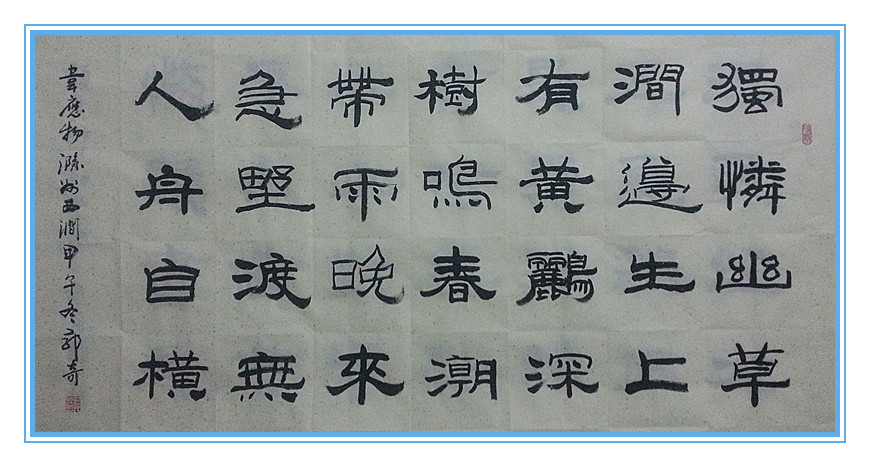 獨憐幽草
澗邊生上
有黃鸝深
樹鳴春潮
帶雨晚來
急野渡無
人舟自橫
韋應物滁州西澗甲午冬郭奇